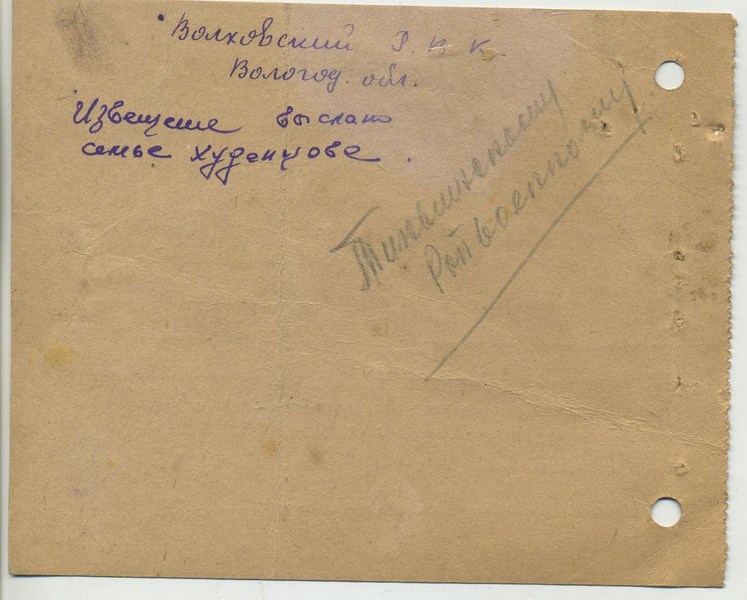 Волховский Р. В. К.
Вологод. обл.
Извещение выслано
семье Худенцове.
Тихвинскому
Райвоенкому